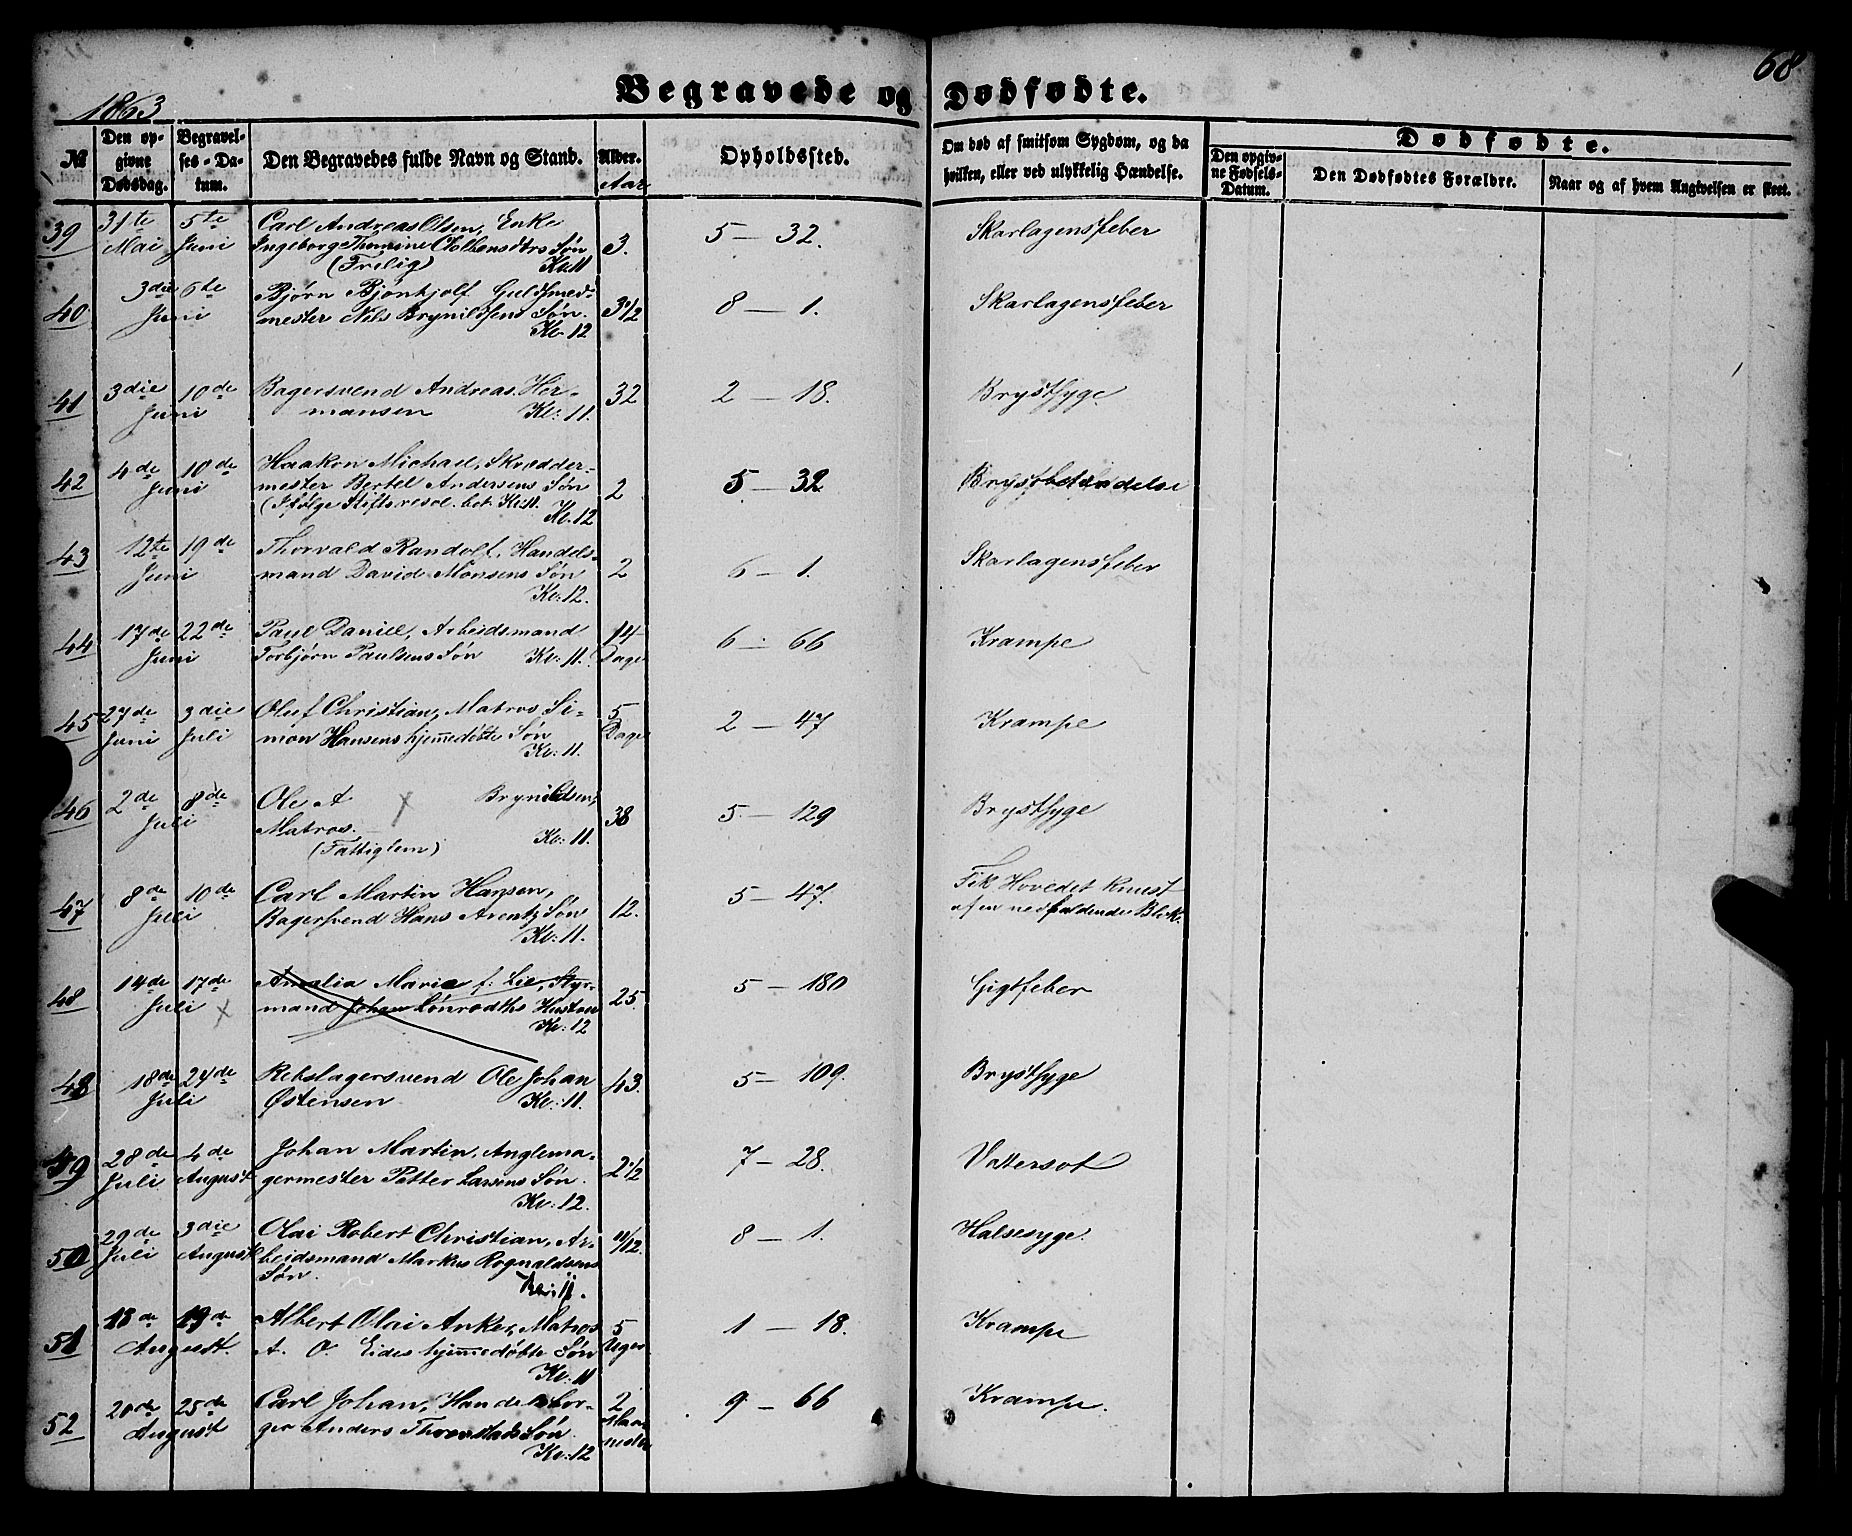 1863
Begravede og Dødfødte.
68
№
Den opgivne Dødsdag.
Begravelses-Datum.
Den Begravedes fulde Navn og Stand.
Alder.
Aar
Opholdssted.
Om død af smitsom Sygdom, og da hvilken, eller ved ulykkelig Hændelse.
Dødfødte.
Den opgivne Fødsels-Datum.
Den Dødfødtes Forældre.
Naar og af hvem Angivelsen er skeet.
39 31te Mai 5te Juni Carl Andreas Olsen, Enke
Ingeborg Thomine Søn 3. 5 - 32. Skarlagensfeber
(Frilig) Kl: 11
40 3die Juni 6te Bjørn Bjønhjolf Guldsmed-
mester Nils Brynildsens Søn. 3 1/2 8 - 1. Skarlagensfeber
Kl. 12
41 3die Juni 10de Bagersvend Andreas Her-
mansen Kl: 11. 32 2 - 18. Brystsyge
42 4de Juni 10de Haakon Michael, Skrædder-
mester Bertel Andersens Søn 2 5 - 32 Brystbetændelse
(Ifølge Stiftsresol. bet. Kl: 11.
Kl. 12
43 12te Juni 19de Thorvald Randolf, Handels-
mand David Monsens Søn 2 6 - 1. Skarlagensfeber
Kl: 12.
44 17de Juni 22de Paul Daniel, Arbeidsmand
Torbjørn Paulsens Søn Kl: 11. 14 Dage 6 - 66 Krampe
45 27de Juni 3die Juli Oluf Christian, Matros Si-
mon Hansens hjemedøbte Søn 5 Dage 2 - 47 Krampe
Kl: 11.
46 2de Juli 8de Ole A Brynildsen,
Matros. Kl: 11. 38 5 - 129 Brystsyge
(Fattiglem)
47 8de Juli 10de Carl Martin Hansen,
Bagersvend Hans Arentz Søn 12. 5 - 47. Fik Hovedet knust
af en nedfaldende Blok.
Kl: 11.
48 14de Juli 17de Amalia Marie f: Lie, Styr-
mand Johan Lönrodths Hustru 25 5 - 180 Gigtfeber
Kl: 12
48 18de Juli 24de Rebslagersvend Ole Johan
Østensen Kl: 11. 43. 5 - 109. Brystsyge
49 28de Juli 4de August Johan Martin, Anglema-
germester Petter Larsens Søn. 2 1/2 7 - 28. Vattersot
Kl: 12.
50 29de Juli 3die August Olai Robert Christian, Ar-
beidsmand Markus Rognaldsens 11/12. 8 - 1. Halsesyge.
Søn. Kl: 11.
51 18de August 19de Albert Olai Anker, Matros
A. O. Eides hjemedøbte Søn 5 Uger 1 - 18. Krampe
Kl: 11
52 20de August 25de Carl Johan, Handelsbor-
ger Anders Søn 2 Maaneder 9 - 66 Krampe.
Kl: 12